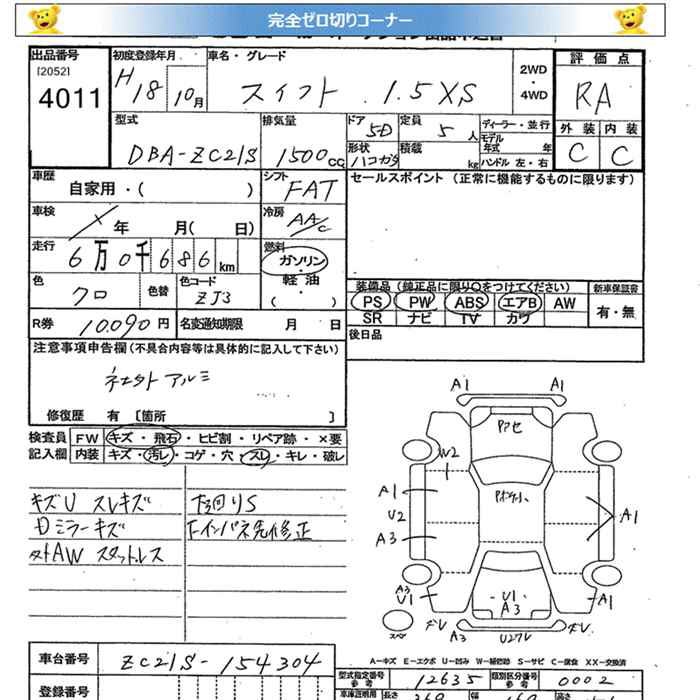 完全ゼロ切りコーナー
出品番号 初度登録年月 車名・グレード 評価点
[2052] 4011 H18 10月 スイフト 1.5XS 2WD・4WD RA
型式 排気量 ドア 5D 定員 5人 ディーラー・並行 外装 内装
DBA-ZC21S 1500cc 形状 積載 kg モデル年式 年 ハンドル 左・右 C C
車歴 自家用・( ) シフト FAT セールスポイント (正常に機能するものに限ります)
車検 年 月( 日) 冷房 AA/C
走行 6万0千686km 燃料 ガソリン・軽油・( )
色 クロ 色替 色コード ZJ3 装備品 (純正品に限り○をつけてください) 新車保証書
PS PW ABS エアB AW 有・無
SR ナビ TV カワ
R券 10090円 名変通知期限 月 日 後日品
注意事項申告欄(不具合内容等は具体的に記入して下さい)
社外アルミ
修復歴 有 [箇所 ]
検査員 FW キズ・飛石・ヒビ割・リペア跡・×要
記入欄 内装 キズ・汚レ・コゲ・穴・スレ・キレ・破レ
キズU スレキズ 下回りS
Dミラーキズ Fインパネ先修正
外AW スタットレス
A1 A1
W2
A1
U2 A1
A3
A3 U1 U1 A3 A1
A3 U2アレ
車台番号 ZC21S-154304
A-キズ E-エクボ U-凹み W-補修跡 S-サビ C-腐食 XX-交換済
型式指定番号 参考 12635 類別区分番号 参考 0002
登録番号 長さ 幅 高さ